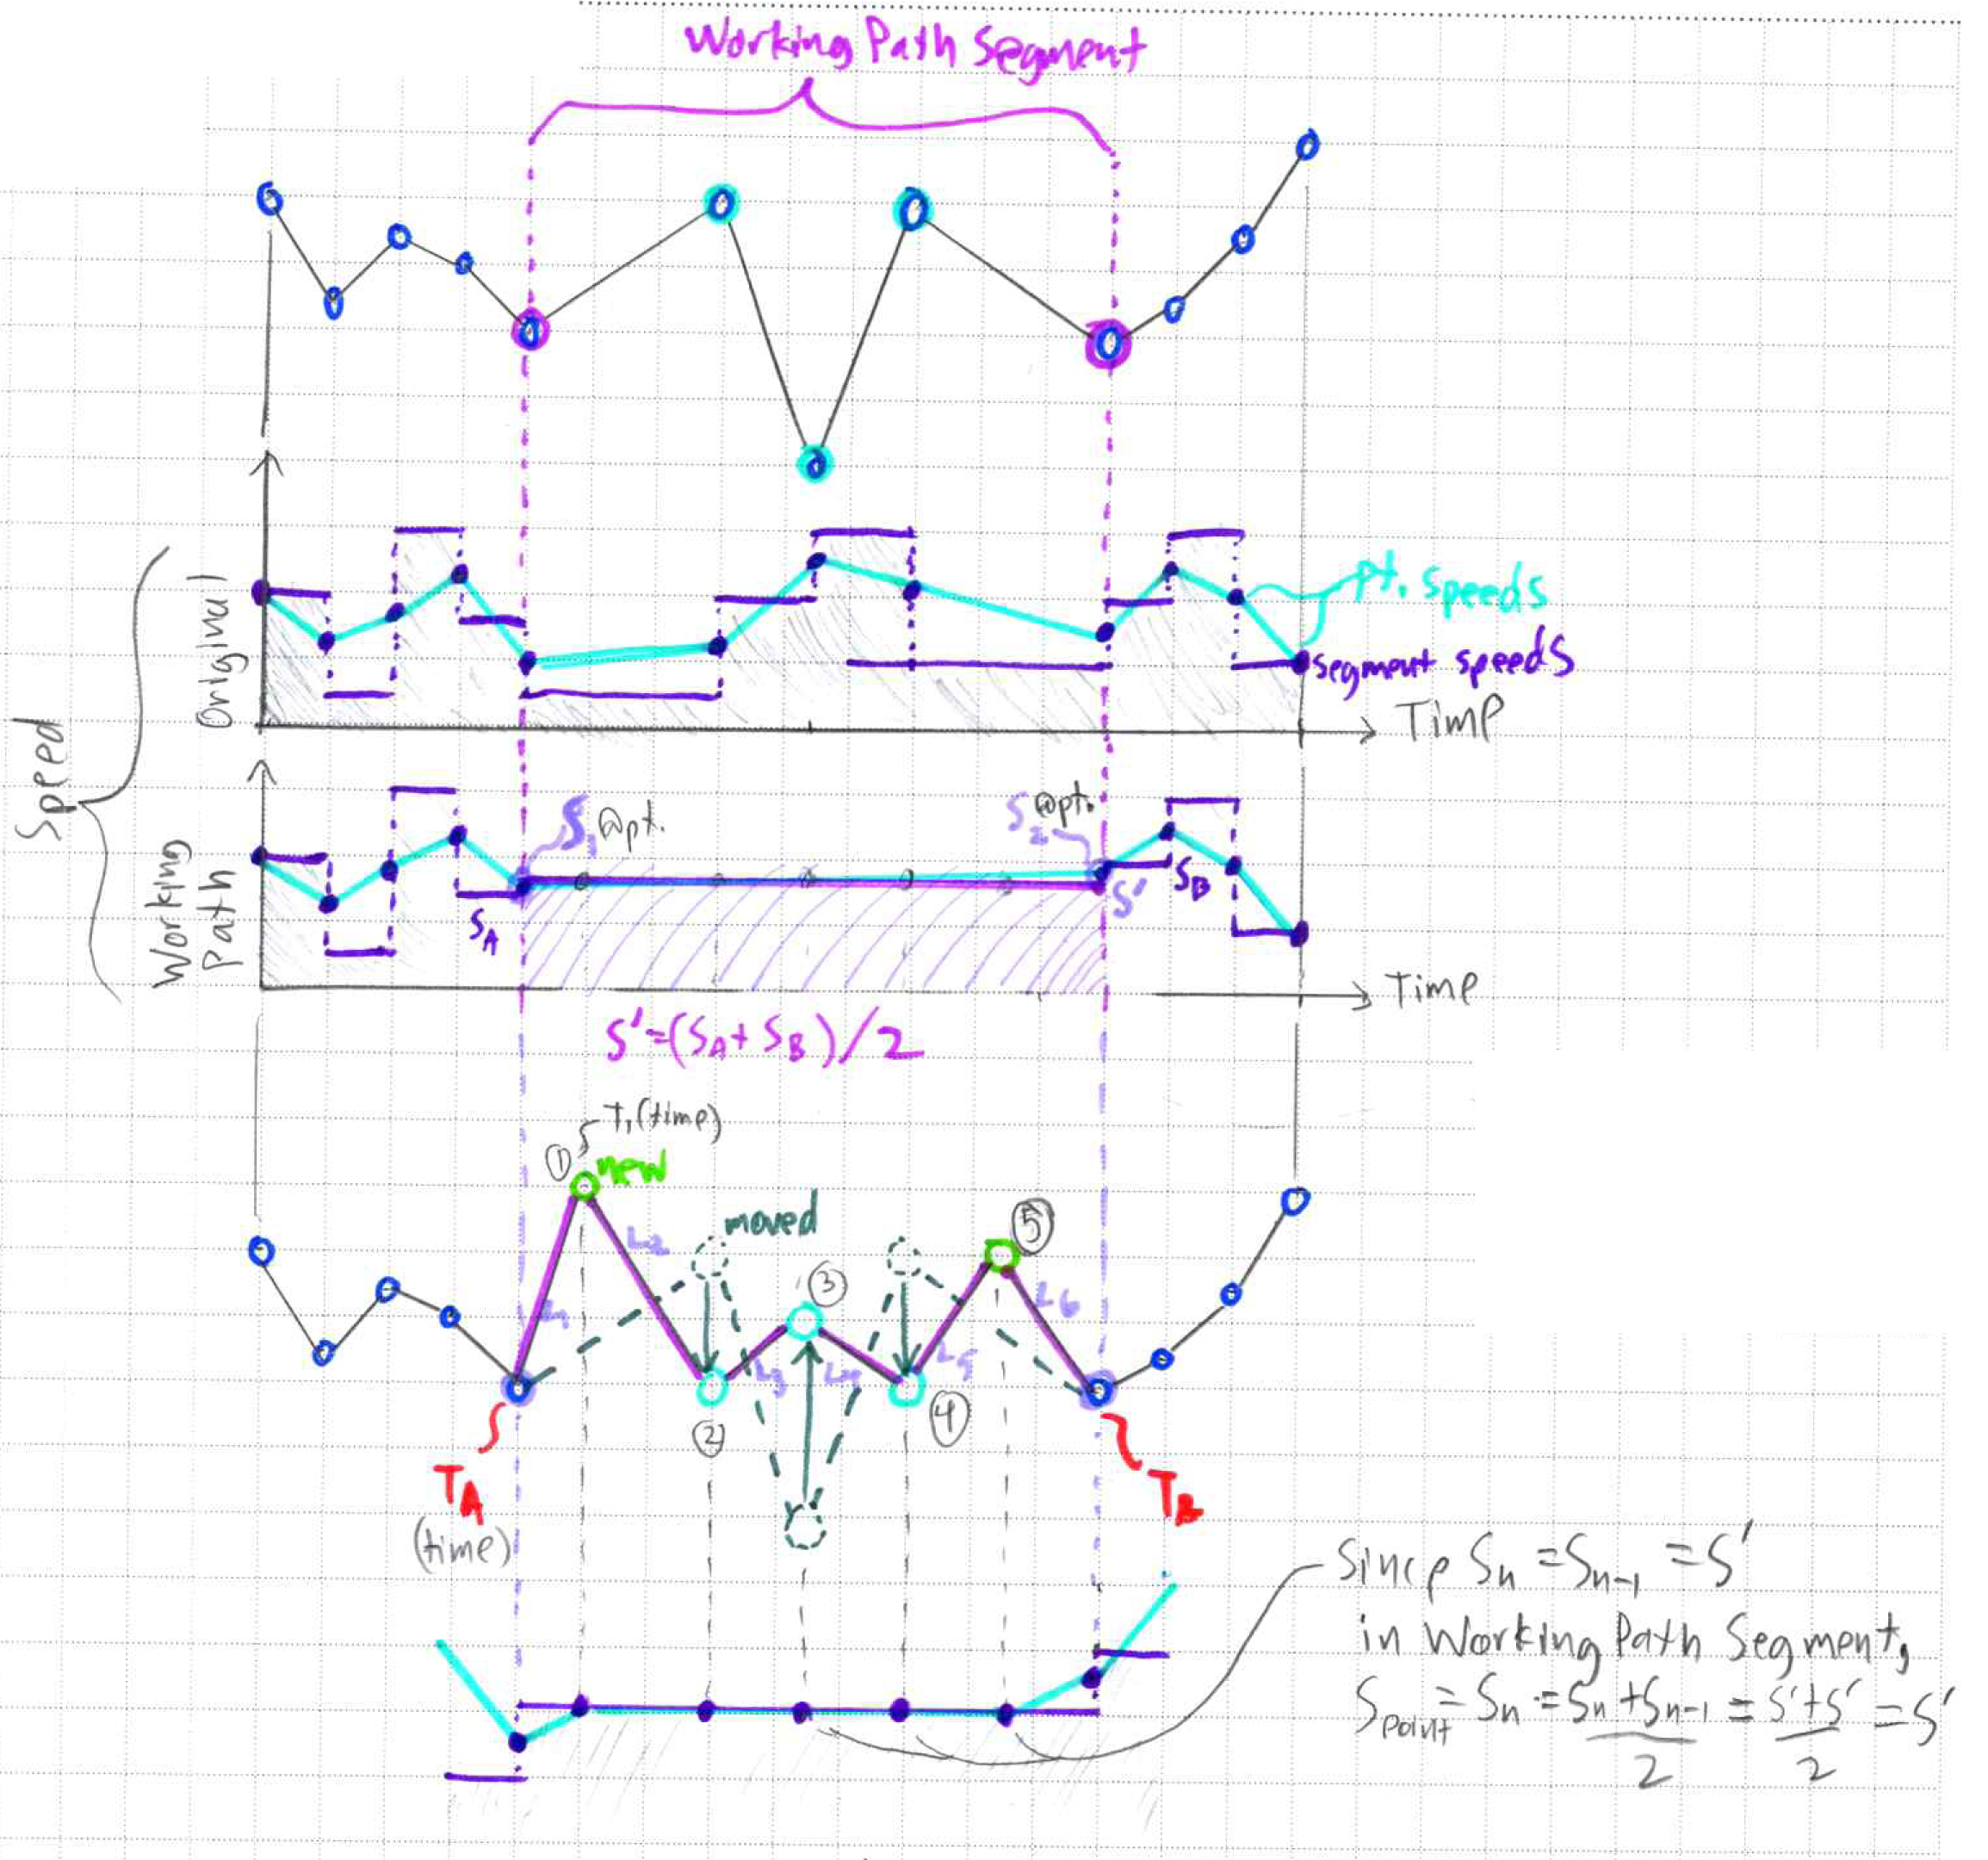 Working Path Segment
Speed
Original
pt. speeds
segment speeds
Time
Working
Path
S₁ @pt.
S₂ @pt.
S_A
S'
S_B
Time
S'=(S_A+S_B)/2
T₁(time)
① new
moved
L₁
L₂
L₃
L₄
L₅
L₆
②
③
④
⑤
T_A
(time)
T_B
Since Sₙ = Sₙ₋₁ = S'
in Working Path Segment,
S_point = Sₙ = (Sₙ+Sₙ₋₁)/2 = (S'+S')/2 = S'